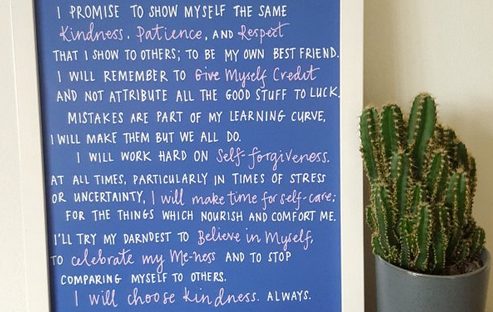 I PROMISE TO SHOW MYSELF THE SAME
Kindness, Patience, AND Respect
THAT I SHOW TO OTHERS; TO BE MY OWN BEST FRIEND.
I WILL REMEMBER TO Give Myself Credit
AND NOT ATTRIBUTE ALL THE GOOD STUFF TO LUCK.
MISTAKES ARE PART OF MY LEARNING CURVE,
I WILL MAKE THEM BUT WE ALL DO.
I WILL WORK HARD ON Self-forgiveness.
AT ALL TIMES, PARTICULARLY IN TIMES OF STRESS
OR UNCERTAINTY, I will make time for self-care;
FOR THE THINGS WHICH NOURISH AND COMFORT ME.
I'LL TRY MY DARNDEST TO Believe in Myself,
TO celebrate my Me-ness AND TO STOP
COMPARING MYSELF TO OTHERS.
I will choose kindness. ALWAYS.